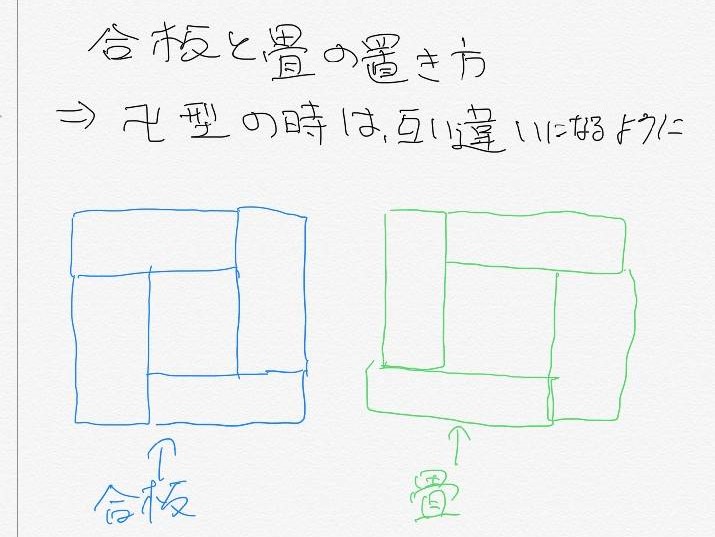 合板と畳の置き方
⇒ 卍型の時は、互い違いになるように
合板
畳